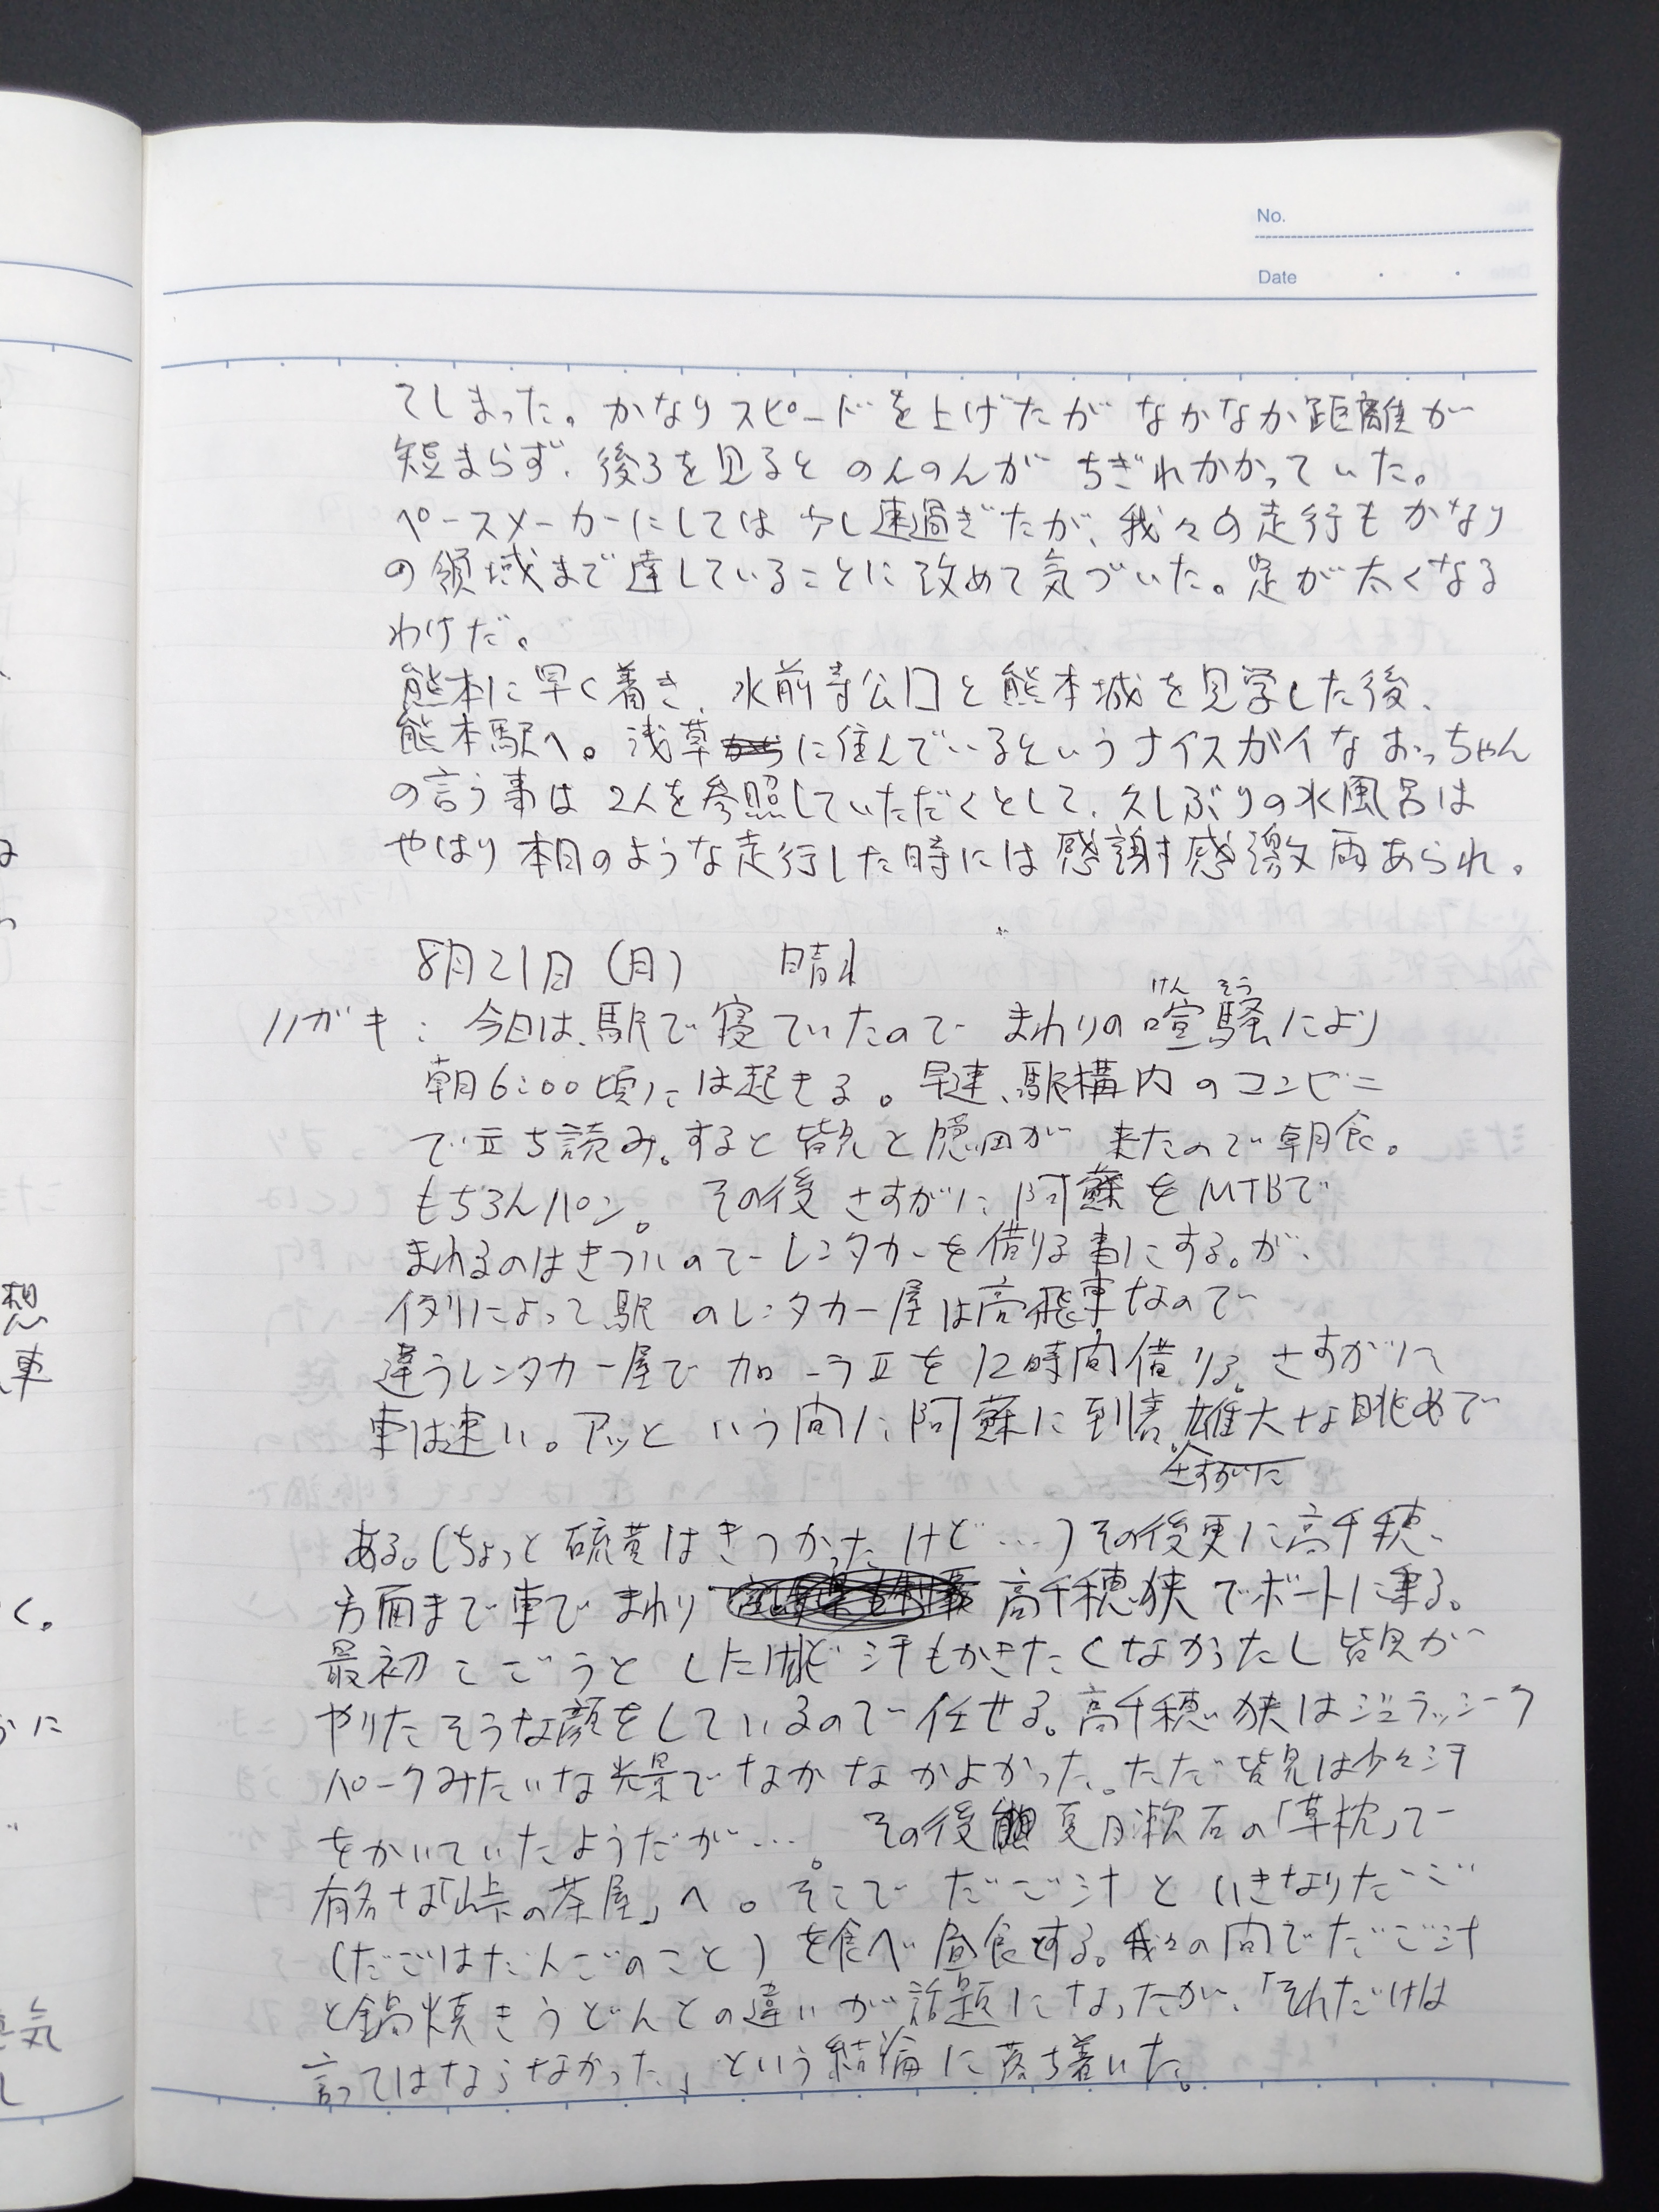 No.
Date
てしまった。かなりスピードを上げたがなかなか距離が
短まらず、後ろを見るとのんのんがちぎれかかっていた。
ペースメーカーにしては少し速過ぎたが、我々の走行もかなり
の領域まで達していることに改めて気づいた。足が太くなる
わけだ。
熊本に早く着き、水前寺公口と熊本城を見学した後、
熊本駅へ。浅草に住んでいるというナイスガイなおっちゃん
の言う事は2人を参照していただくとして、久しぶりの水風呂は
やはり本日のような走行した時には感謝感激雨あられ。
8月21日(月) 晴れ
けん そう
ハガキ: 今日は、駅で寝ていたのでまわりの喧騒により
朝6:00頃には起きる。早速、駅構内のコンビニ
で立ち読み。すると皆見と隠田が来たので朝食。
もちろんパン。その後さすがに阿蘇をMTBで
まわるのはきついのでレンタカーを借りる事にする。が、
例によって駅のレンタカー屋は高飛車なので
違うレンタカー屋でカローラⅡを12時間借りる。さすがに
車は速い。アッという間に阿蘇に到着。雄大な眺めで
さすがに
ある。(ちょっと硫黄はきつかったけど…)その後更に高千穂、
方面まで車でまわり 高千穂狭でボートに乗る。
最初こごうとしたけど汗もかきたくなかったし皆見が
やりたそうな顔をしているので任せる。高千穂狭はジュラッシーク
パークみたいな光景でなかなかよかった。ただ皆見は少々汗
をかいていたようだが…。その後 夏目漱石の「草枕」で
有名な「峠の茶屋」へ。そこでだご汁といきなりだご
(だごはだんごのこと)を食べ昼食とする。我々の間でだご汁
と鍋焼きうどんとの違いが話題になったが、「それだけは
言ってはならなかった」という結論に落ち着いた。
想
車
く。
かに
気
し